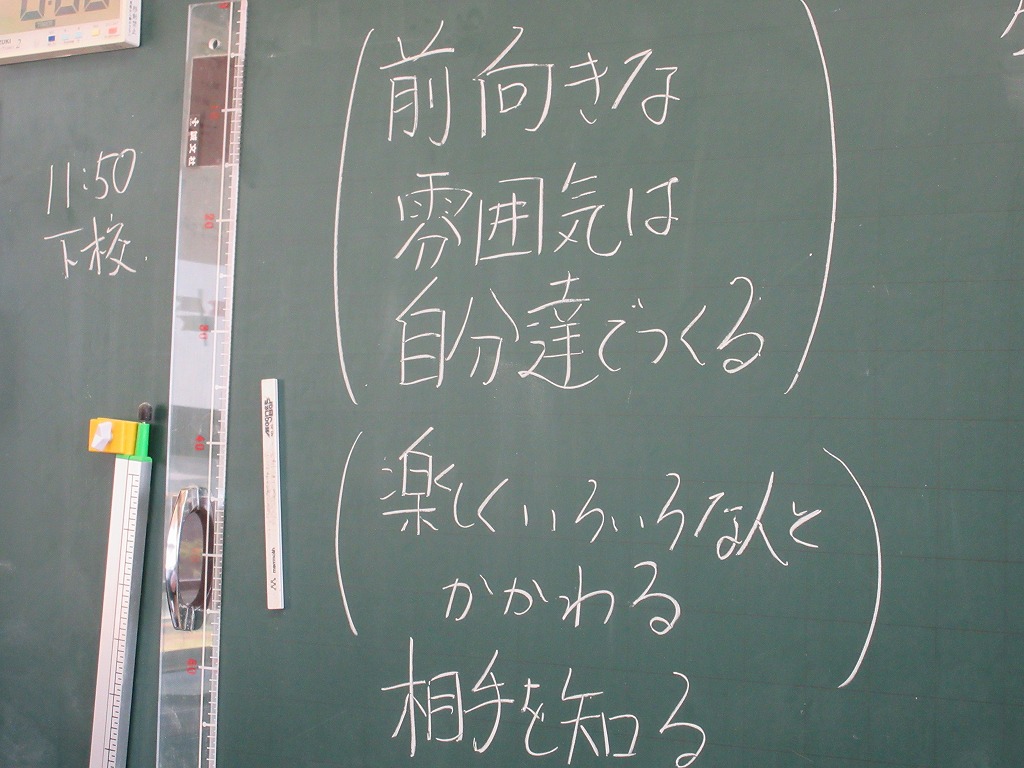 11:50
下校
前向きな
雰囲気は
自分達でつくる
楽しくいろいろな人と
かかわる
相手を知る